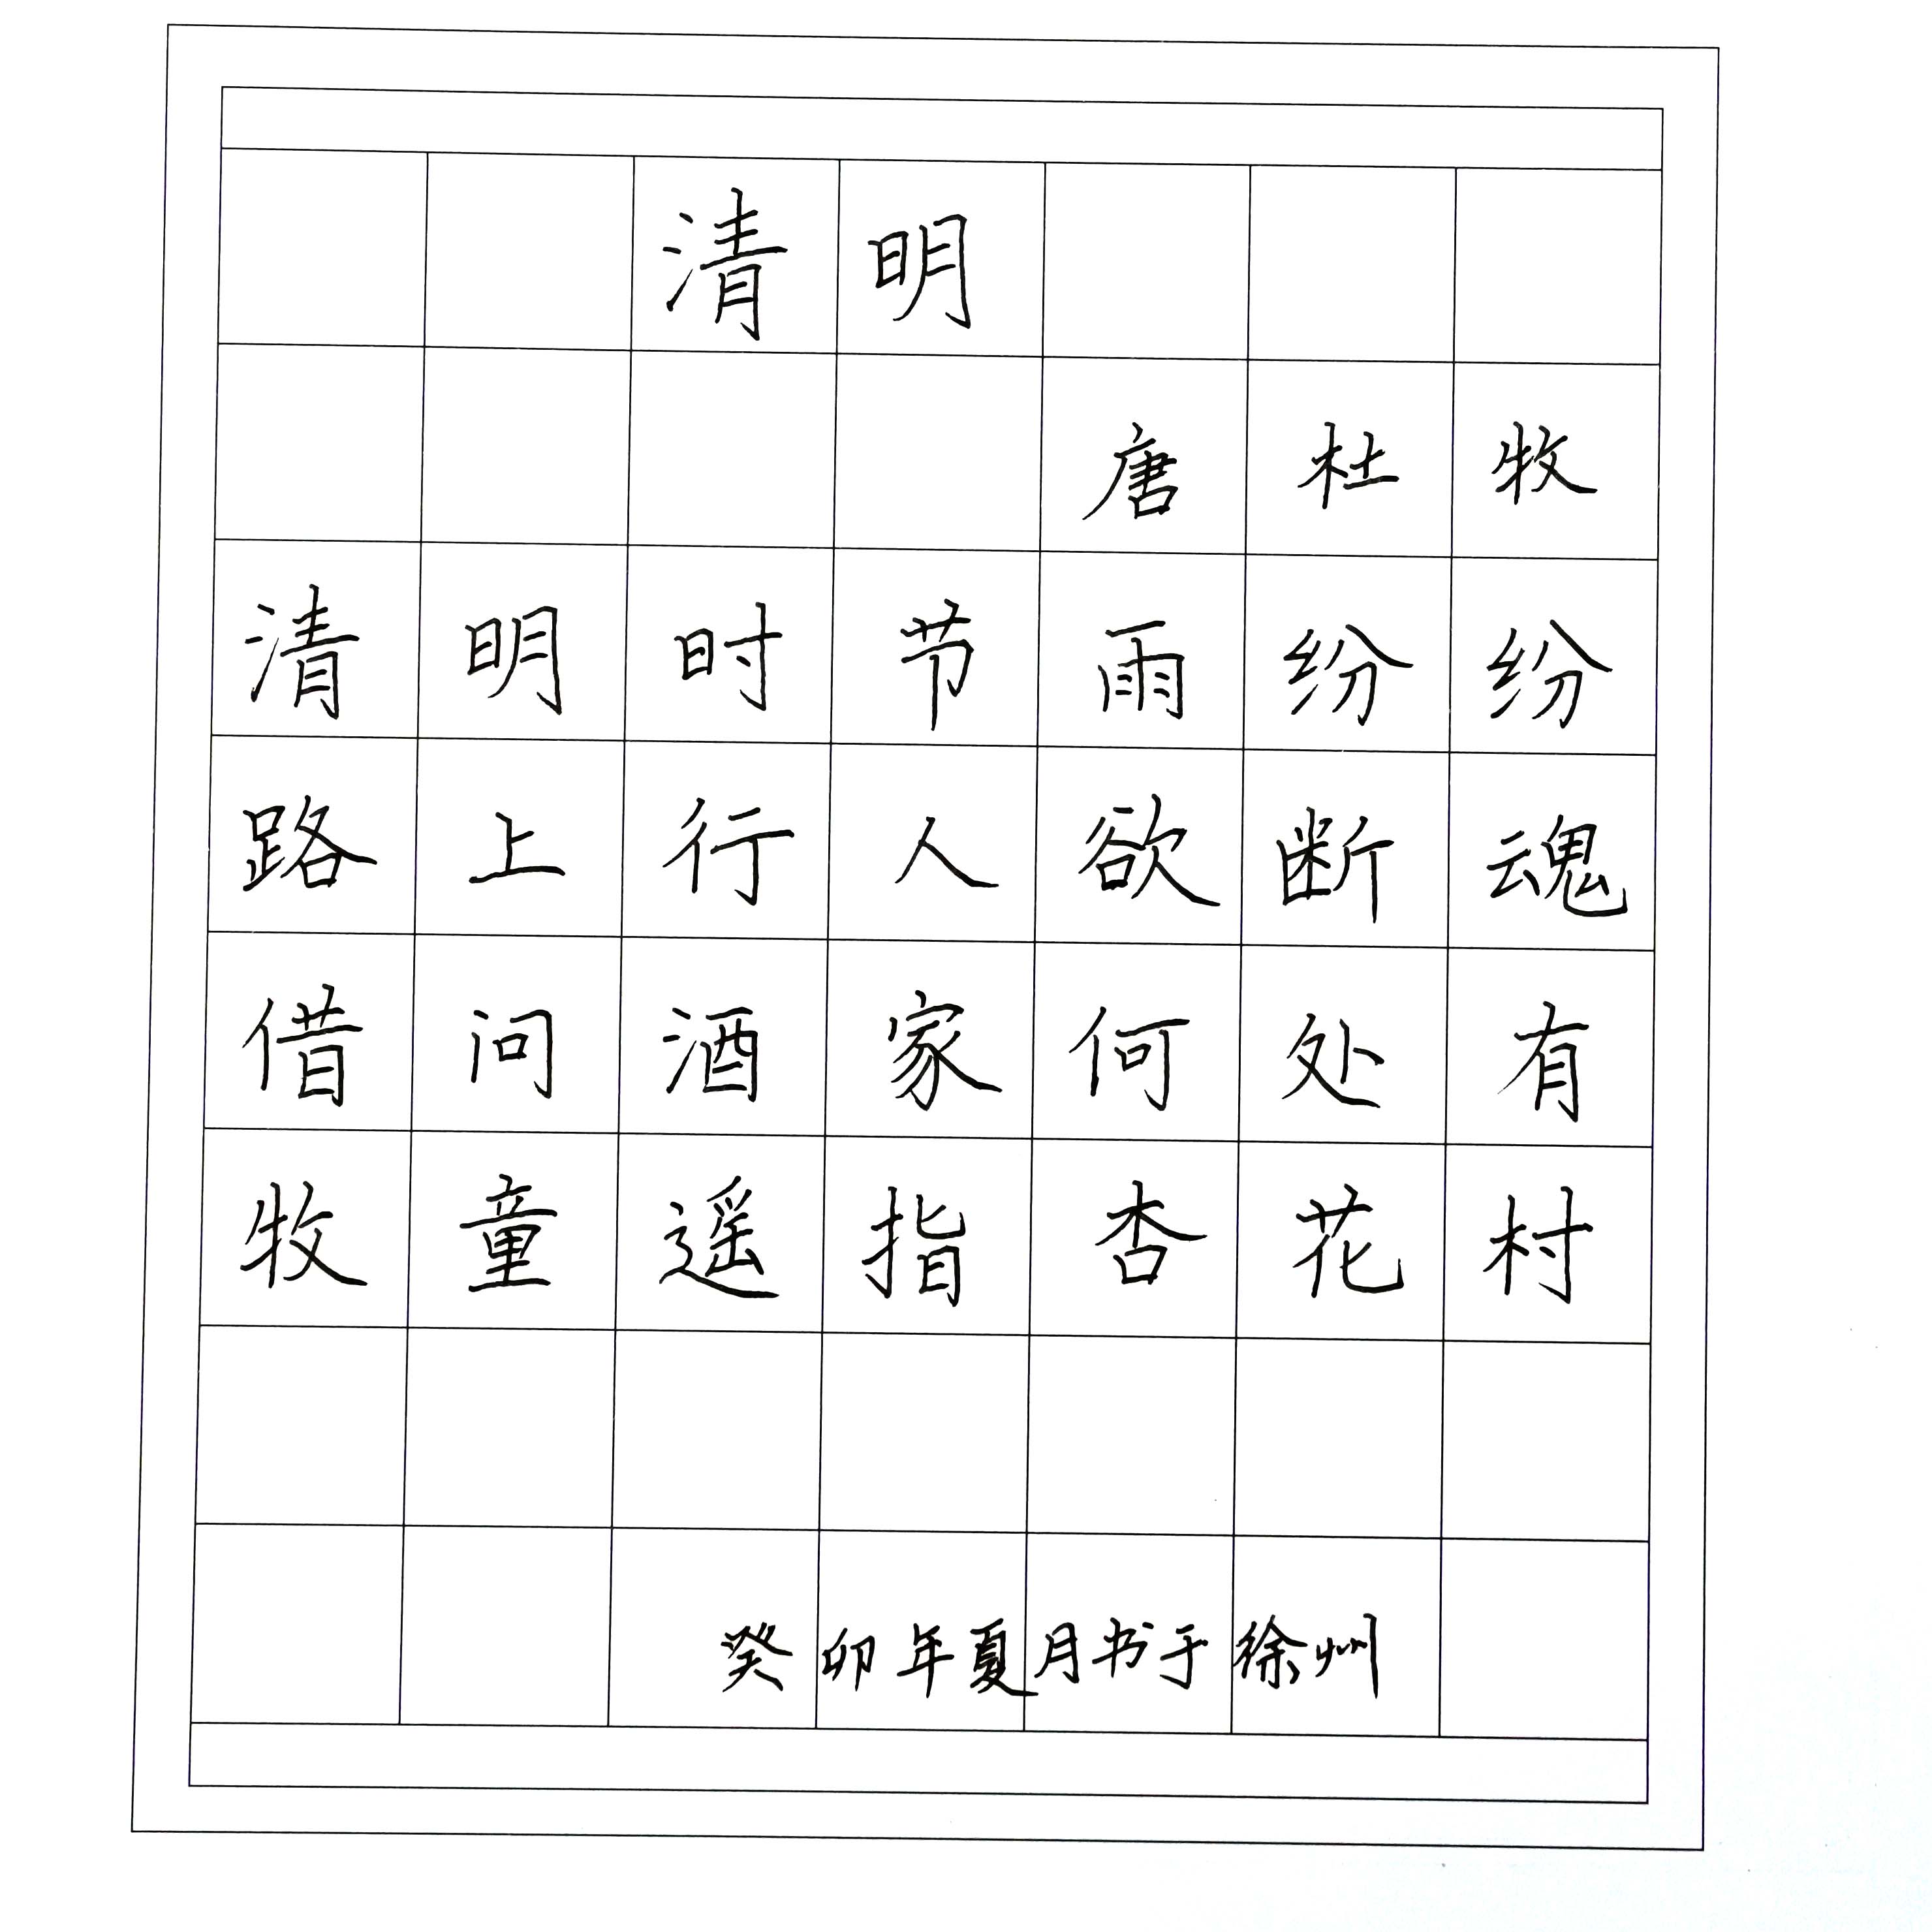 清明
唐杜牧
清明时节雨纷纷
路上行人欲断魂
借问酒家何处有
牧童遥指杏花村
癸卯年夏月书于徐州